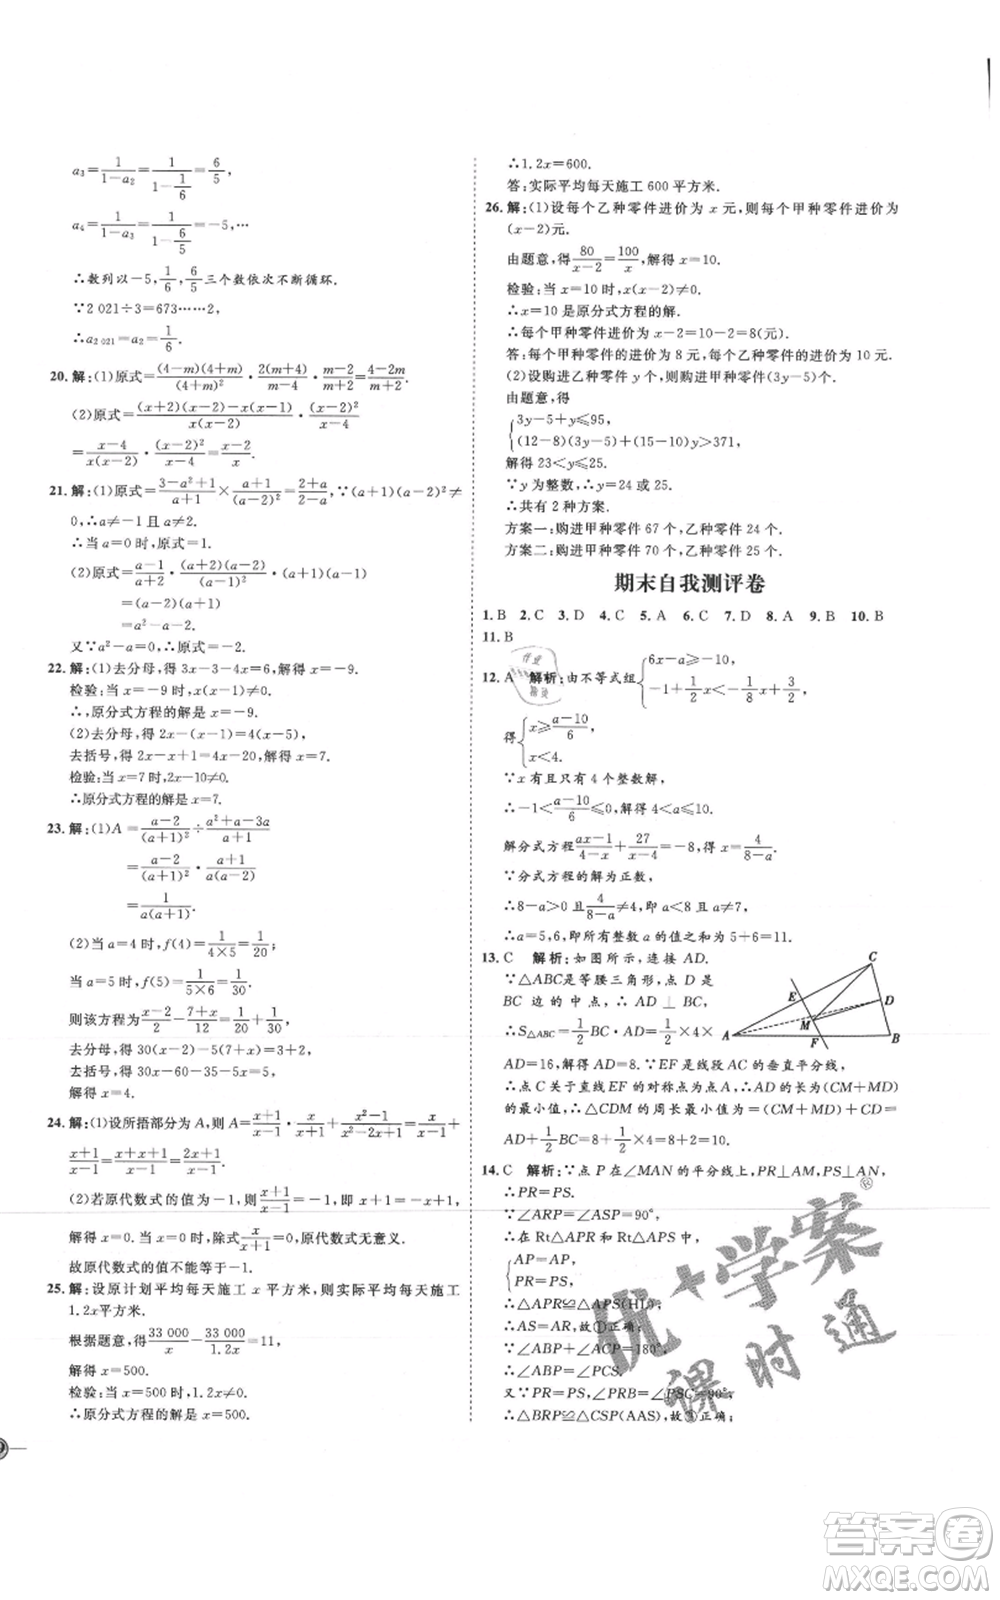 a₃=1/(1-a₂)=1/(1-1/6)=6/5,
a₄=1/(1-a₃)=1/(1-6/5)=-5,…
∴数列以-5,1/6,6/5三个数依次不断循环.
∵2 021÷3=673……2,
∴a₂ ₀₂₁=1/6.
20.解:(1)原式=(4-m)(4+m)/(4+m)²·2(m+4)/(m-4)·(m-2)/(m+2)=(4-2m)/(m+2).
(2)原式=[(x+2)(x-2)-x(x-1)]/[x(x-2)]·(x-2)²/(x-4)
=(x-4)/[x(x-2)]·(x-2)²/(x-4)=(x-2)/x.
21.解:(1)原式=(3-a²+1)/(a+1)×(a+1)/(a-2)²=(2+a)/(2-a),∵(a+1)(a-2)≠
0,∴a≠-1且a≠2.
∴当a=0时,原式=1.
(2)原式=(a-1)/(a+2)·(a+2)(a-2)/(a-1)²·(a+1)(a-1)
=(a-2)(a+1)
=a²-a-2.
又∵a²-a=0,∴原式=-2.
22.解:(1)去分母,得3x-3-4x=6,解得x=-9.
检验:当x=-9时,x(x-1)≠0.
∴,原分式方程的解是x=-9.
(2)去分母,得2x-(x-1)=4(x-5),
去括号,得2x-x+1=4x-20,解得x=7.
检验:当x=7时,2x-10≠0.
∴原分式方程的解是x=7.
23.解:(1)A=(a-2)/(a+1)²÷(a²+a-3a)/(a+1)
=(a-2)/(a+1)²×(a+1)/[a(a-2)]
=1/[a(a+1)].
(2)当a=4时,f(4)=1/(4×5)=1/20;
当a=5时,f(5)=1/(5×6)=1/30.
则该方程为(x-2)/20-(7+x)/12=1/30.
去分母,得30(x-2)-50(7+x)=3+2,
去括号,得30x-60-35-5x=5,
解得x=4.
24.解:(1)设所捂部分为A,则A=(x+1)/(x-1)·x/(x+1)+(x²-1)/(x²-2x+1)=x/(x-1)+
(x+1)/(x-1)=(x+x+1)/(x-1)=(2x+1)/(x-1).
(2)若原代数式的值为-1,则(x+1)/(x-1)=-1,即x+1=-x+1,
解得x=0.当x=0时,除式x/(x+1)=0,原代数式无意义.
故原代数式的值不能等于-1.
25.解:设原计划平均每天施工x平方米,则实际平均每天施工
1.2x平方米.
根据题意,得33 000/x-33 000/1.2x=11,
解得x=500.
检验:当x=500时,1.2x≠0.
∴原分式方程的解是x=500.
∴1.2x=600.
答:实际平均每天施工600平方米.
26.解:(1)设每个乙种零件进价为x元,则每个甲种零件进价为
(x-2)元.
由题意,得80/(x-2)=100/x,解得x=10.
检验:当x=10时,x(x-2)≠0.
∴x=10是原分式方程的解.
∴每个甲种零件进价为x-2=10-2=8(元).
答:每个甲种零件进价为8元,每个乙种零件进价为10元.
(2)设购进乙种零件y个,则购进甲种零件(3y-5)个.
由题意,得
{3y-5+y≤95,
(12-8)(3y-5)+(15-10)y>371,
解得23<y≤25.
∵y为整数,∴y=24或25.
∴共有2种方案.
方案一:购进甲种零件67个,乙种零件24个;
方案二:购进甲种零件70个,乙种零件25个.
期末自我测评卷
1.B 2.C 3.D 4.C 5.A 6.C 7.D 8.A 9.B 10.B
11.B
12.A 解析:由不等式组{6x-a≥-10, -1+1/2x<-1/8x+3/2,
得{x≥(a-10)/6, x<4.
∵x有且只有4个整数解,
∴-1<(a-10)/6≤0,解得4<a≤10.
解分式方程(ax-1)/(4-x)+27/(x-4)=-8,得x=4/(8-a).
∵分式方程的解为正数,
∴8-a>0且4/(8-a)≠4,解得a<8且a≠7.
∴a=5,6,即所有整数a的值之和为5+6=11.
13.C 解析:如图所示,连接AD.
∵△ABC是等腰三角形,点D是
BC边的中点,∴AD⊥BC,
∴S△ABC=1/2BC·AD=1/2×4×
AD=16,解得AD=8.∵EF是线段AC的垂直平分线,
∴点C关于直线EF的对称点为点A,∴AD的长为(CM+MD)
的最小值,∴△CDM的周长最短=(CM+MD)+CD=
AD+1/2BC=8+1/2×4=8+2=10.
C
E
D
M
A
F
B
14.C 解析:∵点P在∠MAN的平分线上,PR⊥AM,PS⊥AN,
∴PR=PS.
∴∠ARP=∠ASP=90°,
∴在Rt△APR和Rt△APS中,
{AP=AP,
PR=PS,
∴△APR≌△APS(HL),
∴AS=AR,故①正确;
∵∠ABP+∠ACP=180°,
∴∠ABP=∠PCS.
又∵PR=PS,∠PRB=∠PSC=90°,
∴△BRP≌△CSP(AAS),故③正确;
作业
精灵
优+学案®
课时通
答案卷
MXQE.COM